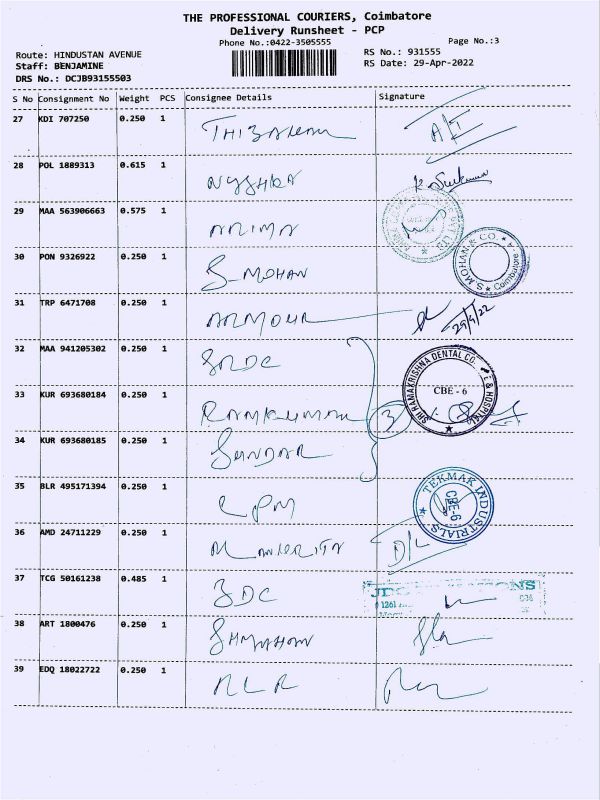 THE PROFESSIONAL COURIERS, Coimbatore
Delivery Runsheet - PCP
Phone No.:0422-3505555
Page No.:3
Route: HINDUSTAN AVENUE
RS No.: 931555
Staff: BENJAMINE
RS Date: 29-Apr-2022
DRS No.: DCJB93155503
S No Consignment No Weight PCS Consignee Details Signature
27 KDI 707250 0.250 1
28 POL 1889313 0.615 1
29 MAA 563906663 0.575 1
30 PON 9326922 0.250 1 S-MOHAN
S. MOHAN & CO. Coimbatore
31 TRP 6471708 0.250 1 ARMOUR
29/4/22
32 MAA 941205302 0.250 1 SRDC
SRI RAMAKRISHNA DENTAL CO E & HOSPITAL
CBE - 6
33 KUR 693680184 0.250 1 RAMKUMAR 3
34 KUR 693680185 0.250 1 SUNDAR
35 BLR 495171394 0.250 1 CPM
TEKMAK INDUSTRIALS
CBE-6
36 AMD 24711229 0.250 1
37 TCG 50161238 0.485 1 JDC
38 ART 1800476 0.250 1
39 EDQ 18022722 0.250 1 RLR